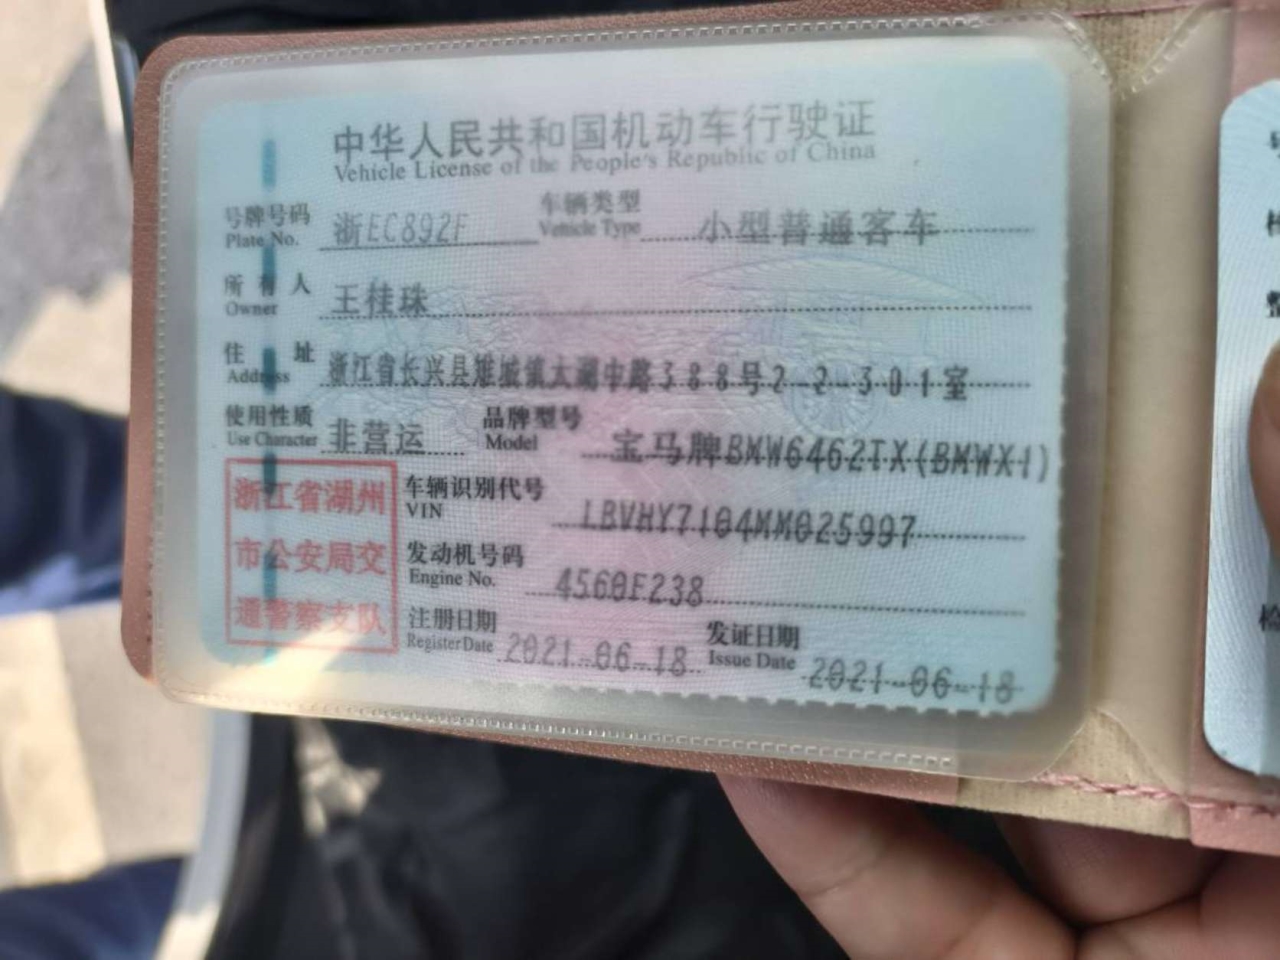 中华人民共和国机动车行驶证
Vehicle License of the People's Republic of China
号牌号码 浙EC892F 车辆类型 小型普通客车
Plate No. Vehicle Type
所有人 王桂珠
Owner
住址 浙江省长兴县雉城镇太湖中路388号2-2-301室
Address
使用性质 非营运 品牌型号 宝马牌BMW6462TX(BMWX1)
Use Character Model
浙江省湖州
市公安局交
通警察支队
车辆识别代号 LBVHY7104MM025997
VIN
发动机号码 4560F238
Engine No.
注册日期 2021-06-18 发证日期 2021-06-18
Register Date Issue Date